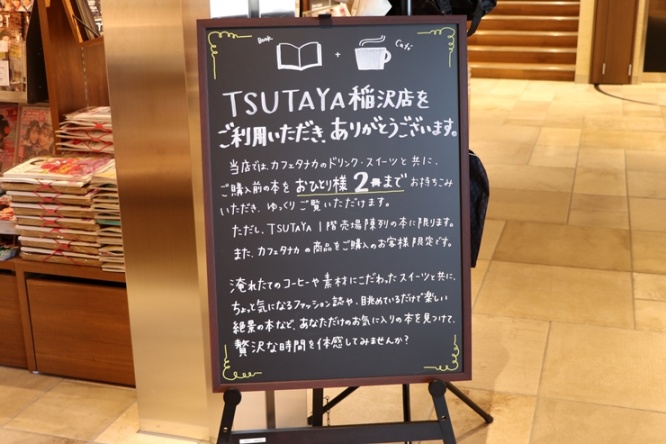 Book + Café
TSUTAYA稲沢店を
ご利用いただき、ありがとうございます。
当店では、カフェタナカのドリンク・スイーツと共に、
ご購入前の本をおひとり様2冊までお持ちこみ
いただき、ゆっくりご覧いただけます。
ただし、TSUTAYA1階売場陳列の本に限ります。
また、カフェタナカの商品をご購入のお客様限定です。
淹れたてのコーヒーや素材にこだわったスイーツと共に、
ちょっと気になるファッション誌や、眺めているだけで楽しい
絶景の本など、あなただけのお気に入りの本を見つけて、
贅沢な時間を体感してみませんか?